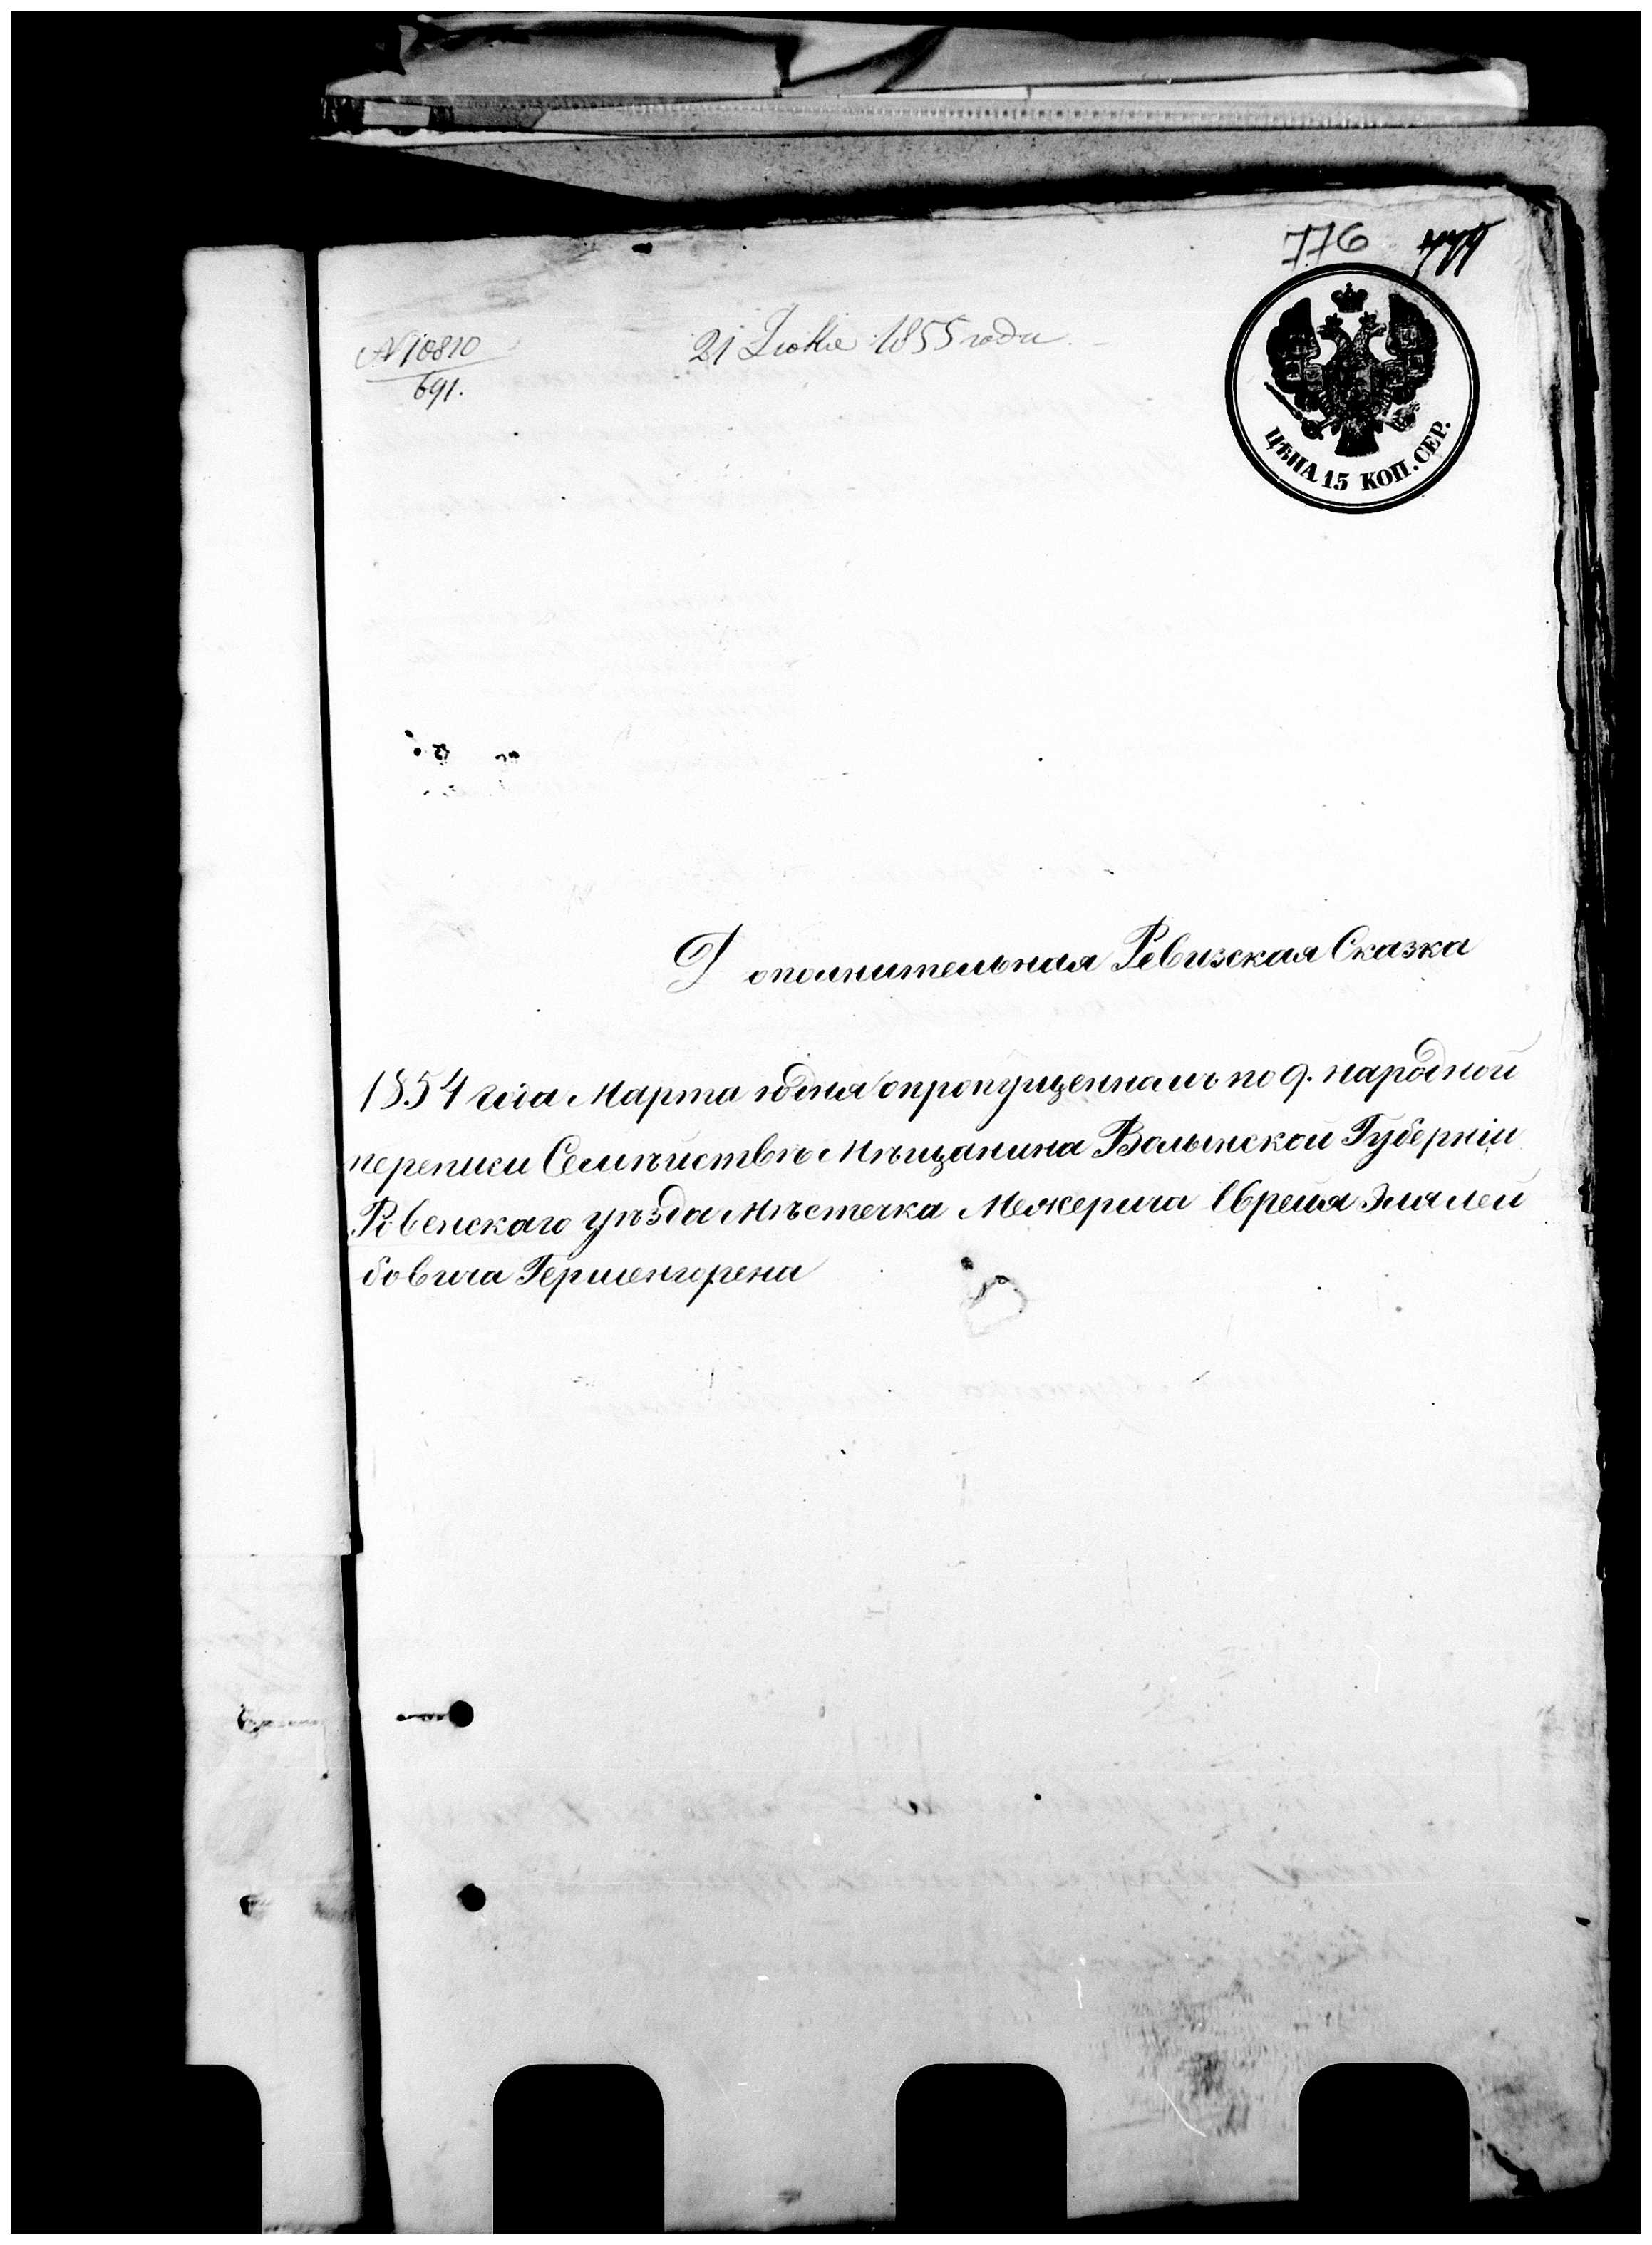 776
№ 10810
691.
21 Июня 1855 года.
ЦѢНА 15 КОП. СЕР.
Дополнительная Ревизская Сказка
1854 года Марта дня о пропущенномъ по 9. народной
переписи Семѣйствѣ Мѣщанина Волынской Губерніи
Ровенскаго уѣзда Мѣстечка Межерича Еврея Эля Лей
бовича Гершенгорена